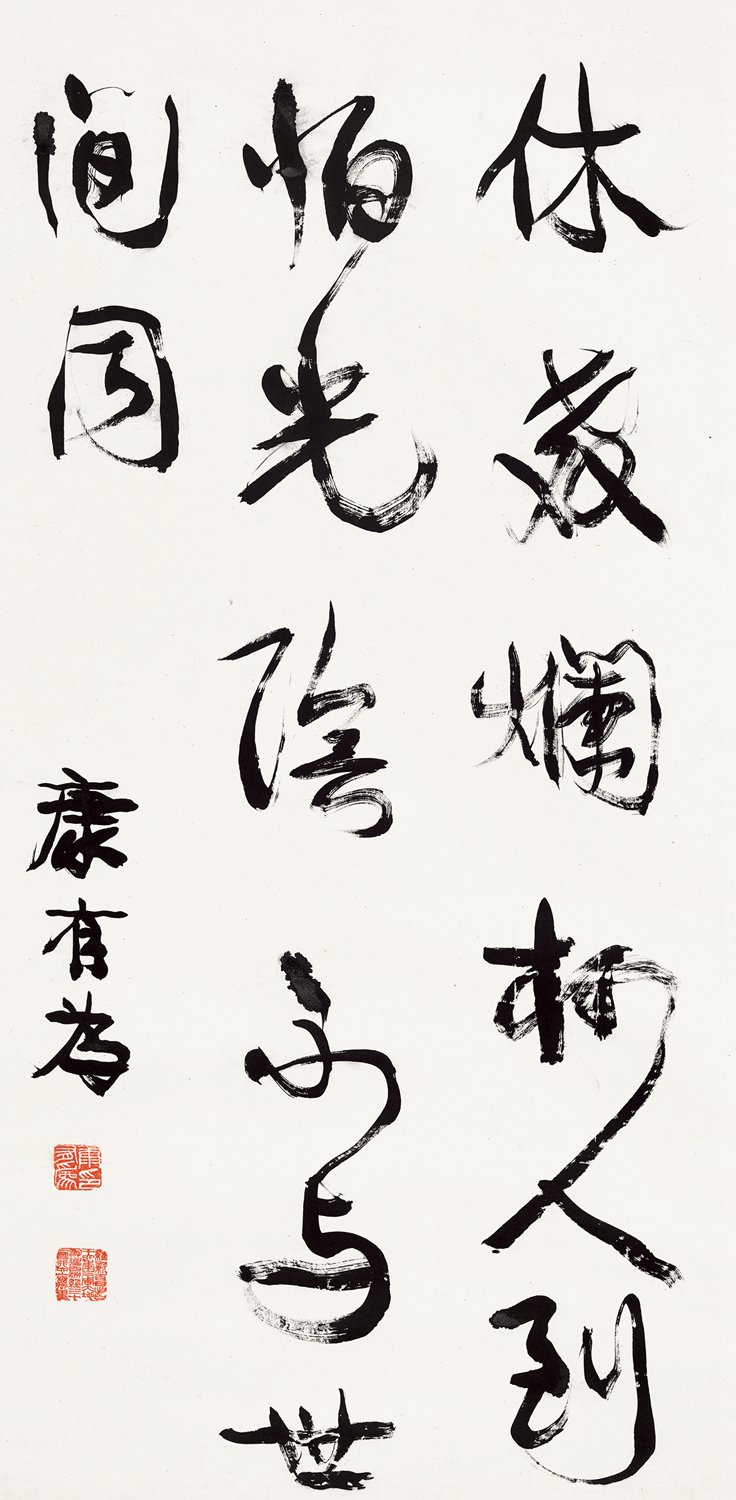 休教爛柯人到
怕光陰不与世
間同
康有為